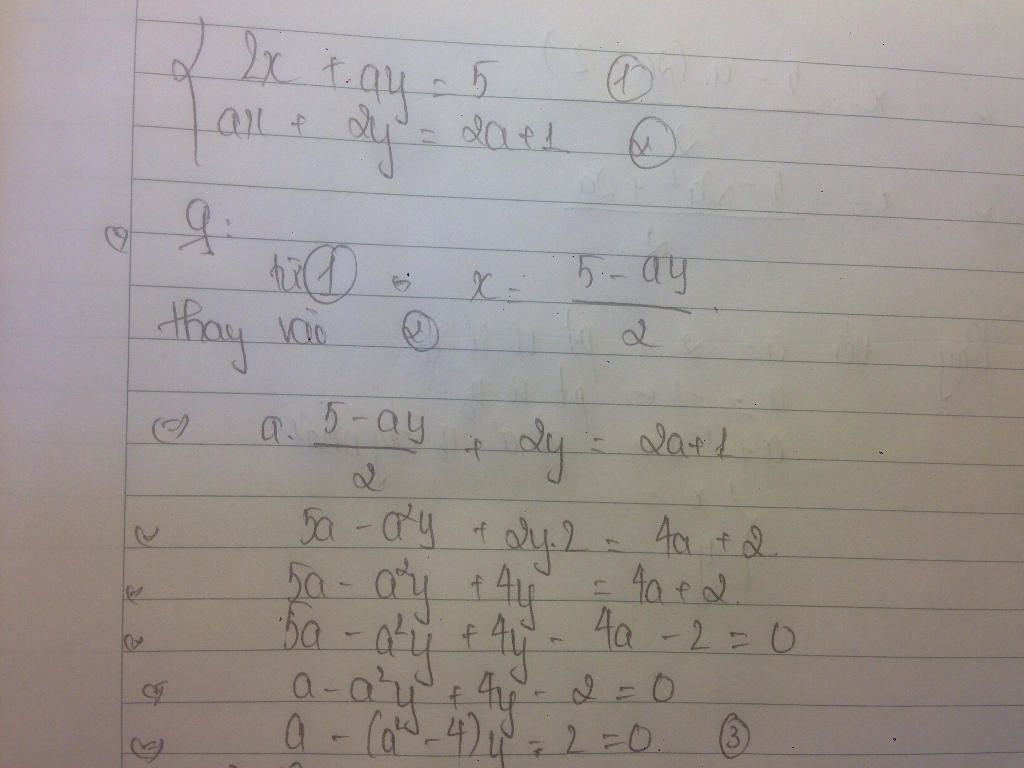 2x + ay = 5 ①
ax + 2y = 2a+1 ②
g:
từ ① ⇔ x = (5 - ay)/2.
thay vào ②
⇔ a. (5 - ay)/2 + 2y = 2a+1
5a - a²y + 2y.2 = 4a + 2
5a - a²y + 4y = 4a + 2.
5a - a²y + 4y - 4a - 2 = 0
⇔ a - a²y + 4y - 2 = 0
⇔ a - (a² - 4)y - 2 = 0. ③